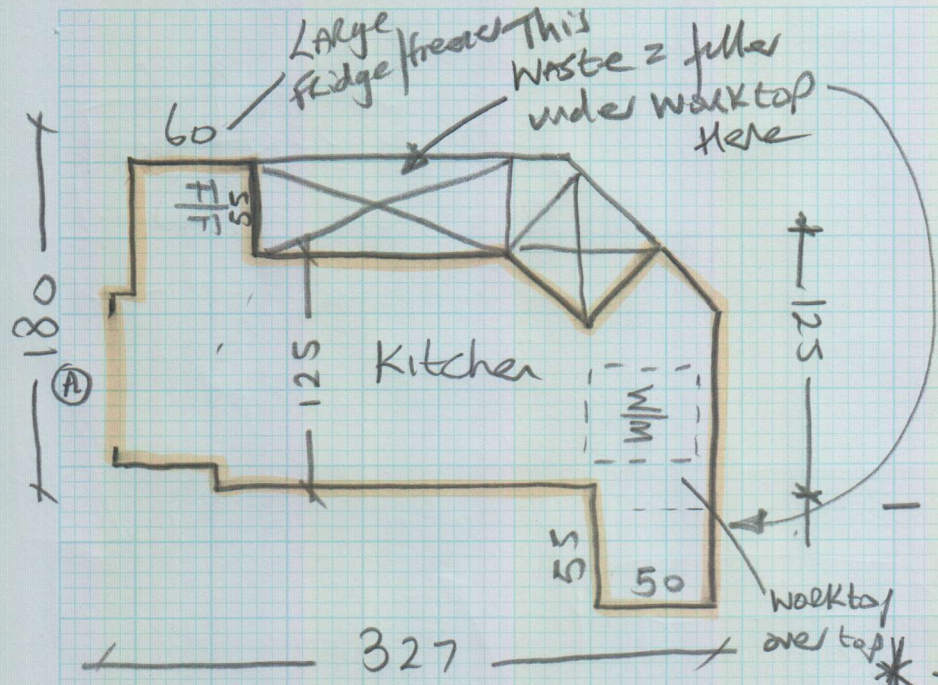 LARge
Fridge/freezer
This
WASte = filler
under worktop
Here
60
F/F
55
180
A
125
Kitchen
125
W/M
55
50
worktop
over top *
327